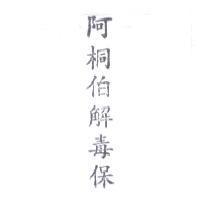 阿桐伯解毒保